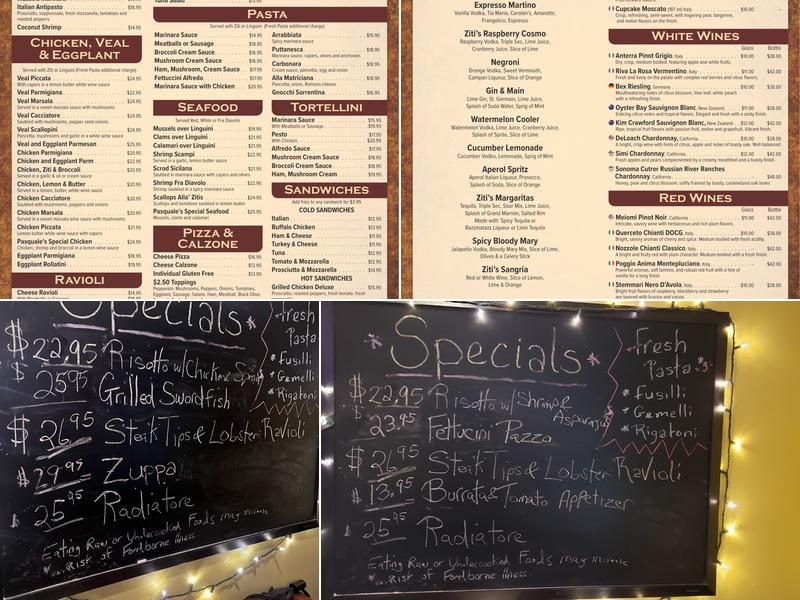 Italian Antipasto $18.95
Prosciutto, soppressate, fresh mozzarella, tomatoes and
roasted peppers
Coconut Shrimp $14.95
CHICKEN, VEAL
& EGGPLANT
Served with Ziti or Linguini (Fresh Pasta additional charge)
Veal Piccata $24.95
With capers in a lemon butter white wine sauce
Veal Parmigiana $22.95
Veal Marsala $24.95
Served in a sweet marsala sauce with mushrooms
Veal Cacciatore $24.95
Sautéed with mushrooms, pepper sand onions
Veal Scallopini $24.95
Pancetta, mushrooms and garlic in a white wine sauce
Veal and Eggplant Parmesan $25.95
Chicken Parmigiana $20.95
Chicken and Eggplant Parm $22.95
Chicken, Ziti & Broccoli $21.95
Served in a garlic & oil or cream sauce
Chicken, Lemon & Butter $21.95
Served in a lemon, butter, white wine sauce
Chicken Cacciatore $21.95
Sautéed with mushrooms, peppers and onions
Chicken Marsala $21.95
Served in a sweet marsala wine sauce with mushrooms
Chicken Piccata $21.95
Lemon butter white wine sauce with capers
Pasquale's Special Chicken $24.95
Chicken, shrimp and broccoli in a lemon and wine sauce
Eggplant Parmigiana $18.95
Eggplant Rollatini $19.95
RAVIOLI
Cheese Ravioli $14.95
PASTA
Served with Ziti or Linguini (Fresh Pasta additional charge)
Marinara Sauce $14.95
Meatballs or Sausage $18.95
Broccoli Cream Sauce $16.95
Mushroom Cream Sauce $16.95
Ham, Mushroom, Cream Sauce $17.95
Fettuccini Alfredo $17.95
Marinara Sauce with Chicken $20.95
Arrabbiata $15.95
Spicy marinara sauce
Puttanesca $18.95
Marinara sauce, capers, olives and anchovies
Carbonara $18.95
Cream sauce, pancetta, egg and onion
Alla Matriciana $18.95
Pancetta, onion, Romano cheese
Gnocchi Sorrentina $16.95
SEAFOOD
Served Red, White or Fra Diavolo
Mussels over Linguini $19.95
Clams over Linguini $21.95
Calamari over Linguini $21.95
Shrimp Scampi $22.95
Served in a garlic, lemon butter sauce
Scrod Siciliana $21.95
Sautéed in marinara, mushrooms and onions
Shrimp Fra Diavolo $22.95
Shrimp sautéed in a spicy marinara sauce
Scallops Alla' Zitis $24.95
Scallops and tomatoes sautéed in lemon butter
Pasquale's Special Seafood $25.95
Mussels, clams and calamari
PIZZA &
CALZONE
Cheese Pizza $16.95
Cheese Calzone $12.95
Individual Gluten Free $13.95
$2.50 Toppings
Pepperoni, Mushrooms, Peppers, Onions, Tomatoes,
Eggplant, Sausage, Salami, Ham, Meatball, Black Olive,
TORTELLINI
Marinara Sauce $15.95
With Meatballs or Sausage $19.95
Pesto $17.95
With Chicken $20.95
Alfredo Sauce $17.95
Mushroom Cream Sauce $16.95
Broccoli Cream Sauce $16.95
Ham, Mushroom Cream $19.95
SANDWICHES
Add fries to any sandwich for $2.95
COLD SANDWICHES
Italian $12.95
Buffalo Chicken $13.95
Ham & Cheese $11.95
Turkey & Cheese $11.95
Tuna $12.95
Tomato & Mozzarella $12.95
Prosciutto & Mozzarella $14.95
HOT SANDWICHES
Grilled Chicken Deluxe $14.95
Prosciutto, roasted peppers, fresh tomato, fresh
Expresso Martino
Vanilla Vodka, Tia Maria, Carolan's, Amaretto,
Frangelico, Espresso
Ziti's Raspberry Cosmo
Raspberry Vodka, Triple Sec, Lime Juice,
Cranberry Juice, Slice of Lime
Negroni
Orange Vodka, Sweet Vermouth,
Campari Liqueur, Slice of Orange
Gin & Main
Lime Gin, St. Germain, Lime Juice,
Splash of Soda Water, Sprig of Mint
Watermelon Cooler
Watermelon Vodka, Lime Juice, Cranberry Juice,
Splash of Sprite, Slice of Lime
Cucumber Lemonade
Cucumber Vodka, Lemonade, Sprig of Mint
Aperol Spritz
Aperol Italian Liqueur, Prosecco,
Splash of Soda, Slice of Orange
Ziti's Margaritas
Tequila, Triple Sec, Sour Mix, Lime Juice,
Splash of Grand Marnier, Salted Rim
Made with 1/2 oz Tequila or
Razzmatazz Liqueur or Lime Tequila
Spicy Bloody Mary
Jalapeño Vodka, Bloody Mary Mix, Slice of Lime,
Olives & a Celery Stick
Ziti's Sangria
Red or White Wine, Slice of Lemon,
Lime & Orange
Cupcake Moscato (187 ml) Italy $10.00
Crisp, refreshing, semi-sweet, with lingering pear, tangerine,
and melon flavors.
WHITE WINES
Glass Bottle
Anterra Pinot Grigio, Italy $10.00 $38.00
Dry, crisp, medium bodied, featuring apple and white fruits.
Riva La Rosa Vermentino, Italy $11.00 $42.00
Fresh and lively on the palate with complex red berries and citrus flavors.
Bex Riesling, Germany $10.00 $38.00
Mouthwatering notes of citrus blossom, lime leaf, white peach
with a refreshing finish.
Oyster Bay Sauvignon Blanc, New Zealand $11.00 $38.00
Enticing citrus notes and tropical flavors. Elegant and fresh with a zesty finish.
Kim Crawford Sauvignon Blanc, New Zealand $12.00 $42.00
Ripe, tropical fruit flavors with passion fruit, melon and grapefruit. Vibrant finish.
DeLoach Chardonnay, California $38.00
A bright, crisp wine with hints of citrus, apple and notes of toasty oak. Well-balanced.
Simi Chardonnay, California $42.00
Fresh apples and pears complemented by a creamy mouthfeel and a toasty finish.
Sonoma Cutrer Russian River Ranches
Chardonnay, California $48.00
Honey, pear and citrus blossom, softly framed by toasty, caramelized oak tones.
RED WINES
Glass Bottle
Meiomi Pinot Noir, California $11.00 $42.00
Intricate, savory wine with herbaceous and rich plum flavors.
Querceto Chianti DOCG, Italy $10.00 $38.00
Bright, savory aromas of cherry and spice. Medium-bodied with fresh acidity.
Nozzole Chianti Classico, Italy $42.00
A bright and fruity red with plum character. Medium-bodied with a smooth finish.
Poggio Anima Montepluciano, Italy $42.00
Powerful aromas, soft tannins, and robust red fruit with a hint of
vanilla for a long finish.
Stemmari Nero D'Avola, Italy $10.00 $38.00
Bright fruit flavors of raspberry, blackberry and strawberry
are layered with licorice and
Specials
$22.95 Risotto w/Chicken
$25.95 Grilled Swordfish
$26.95 Steak Tips & Lobster Ravioli
$29.95 Zuppa
25.95 Radiatore
Eating Raw or Undercooked Foods may increase
Risk of Foodborne Illness
Fresh
Pasta
* Fusilli
* Gemelli
* Rigatoni
Specials
$22.95 Risotto w/ Shrimp &
Asparagus
23.95 Fettucini Pazza
$26.95 Steak Tips & Lobster Ravioli
$13.95 Burrata & Tomato Appetizer
25.95 Radiatore
Eating Raw or Undercooked Foods may increase
Risk of Foodborne Illness.
Fresh
Pasta
* Fusilli
* Gemelli
* Rigatoni